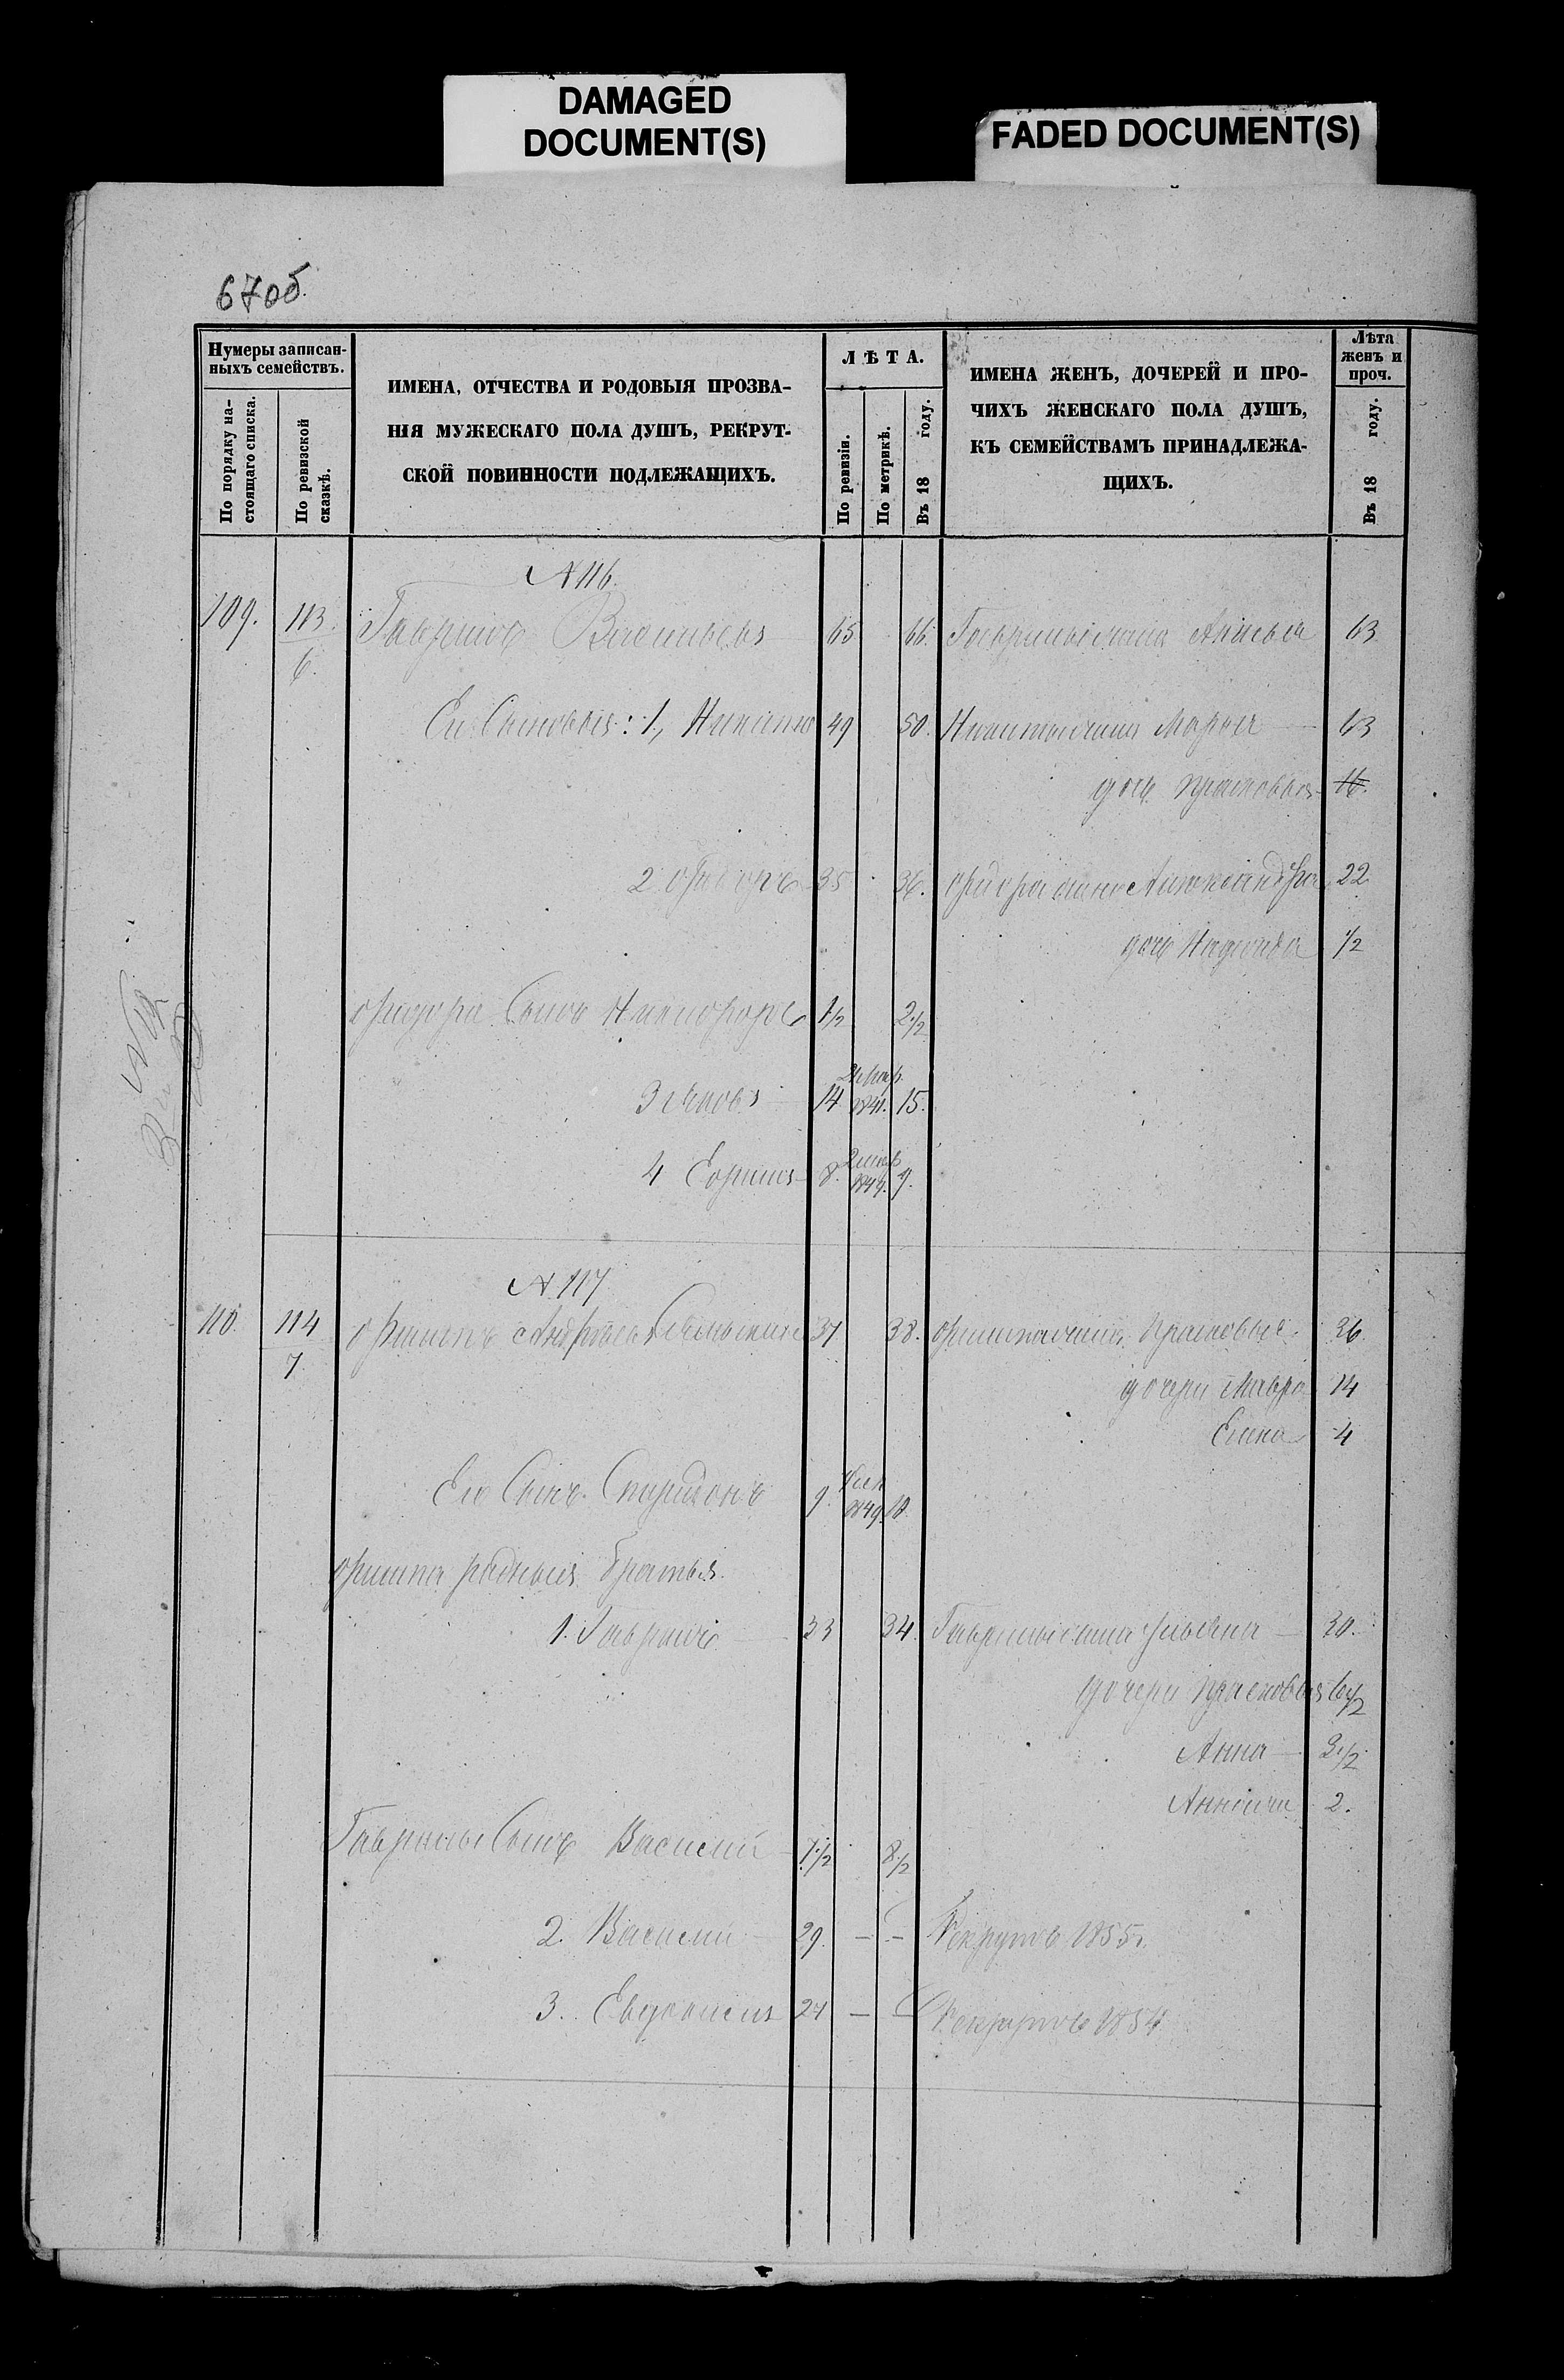 DAMAGED
DOCUMENT(S)
FADED DOCUMENT(S)
670б.
Нумеры записан-
ныхъ семействъ.
По порядку на-
стоящаго списка.
По ревизской
сказкѣ.
ИМЕНА, ОТЧЕСТВА И РОДОВЫЯ ПРОЗВА-
НІЯ МУЖЕСКАГО ПОЛА ДУШЪ, РЕКРУТ-
СКОЙ ПОВИННОСТИ ПОДЛЕЖАЩИХЪ.
ЛѢТА.
По ревизіи.
По метрикѣ.
Въ 18 году.
ИМЕНА ЖЕНЪ, ДОЧЕРЕЙ И ПРО-
ЧИХЪ ЖЕНСКАГО ПОЛА ДУШЪ,
КЪ СЕМЕЙСТВАМЪ ПРИНАДЛЕЖА-
ЩИХЪ.
Лѣта
женъ и
проч.
Въ 18 году.
N 116.
109. 113/6. Гаврилъ Васильевъ 65 66. Гаврилы жена 63
Ею Сыновья: 1, Никита 49 50. Никиты жена Марья 63
дочь Прасковья 16.
2 Ѳедоръ 35 36. Ѳедора жена Александра 22
дочь 1/2
Ѳедора Сынъ Никифоръ 1/2 2 1/2
3 Яковъ 14 1841. 15.
4 Ефимъ 8. 9.
N. 117
110. 114/7. Филипъ Андреевъ 37 38. Филипа жена Прасковья 36.
дочери Мавра 14
Елена 4
Его Сынъ Спиридонъ 9. 1849. 10.
Филипа родныя братья.
1. Гаврилъ 33 34. Гаврилы жена Ульяна 30.
дочери Прасковья 6 1/2
Анна 3 1/2
2.
Гаврилы Сынъ Василій 7 1/2 8 1/2
2. Василій 29. — — Рекрутъ 1855.
3. Евдокимъ 24 — Рекрутъ 1854